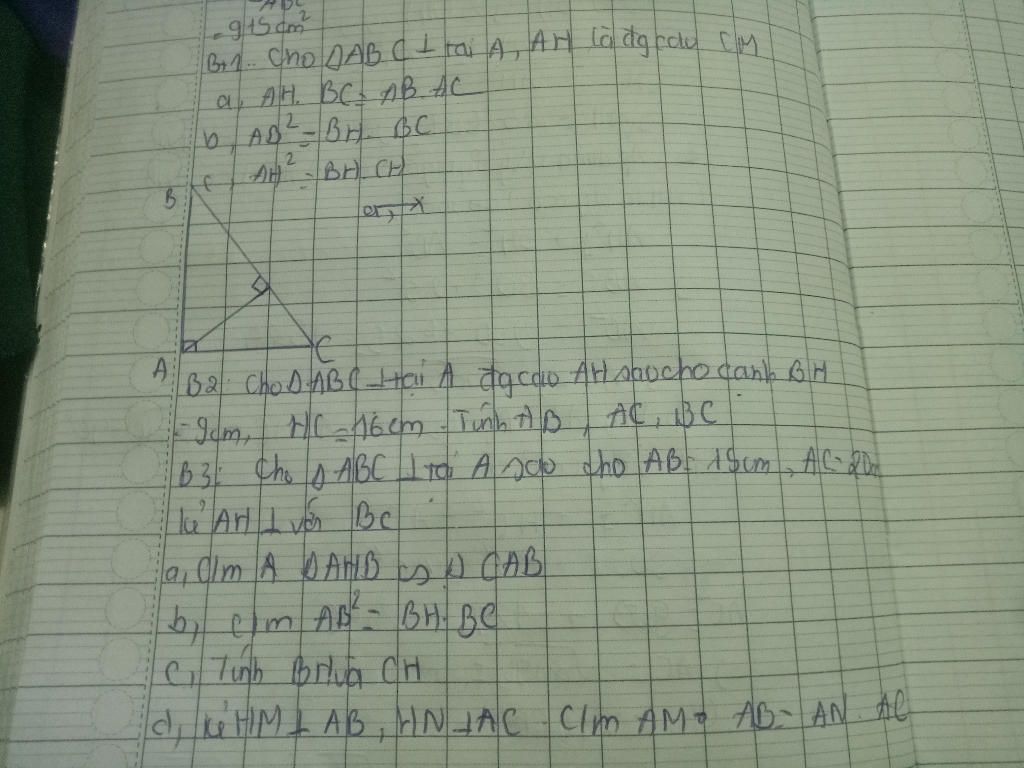 ABC
= 915cm²
B1: Cho ΔABC ⊥ tại A, AH là đg cao CM
a, AH. BC = AB. AC
b, AB² = BH. BC
B
c, AH² = BH. CH
A
C
B2: Cho ΔABC ⊥ tại A đg cao AH sao cho cạnh BH
= 9cm, HC = 16cm. Tính AB, AC, BC
B3: Cho ΔABC ⊥ tại A sao cho AB = 15cm, AC = 20
kẻ AH ⊥ với BC
a, C/m A ΔAHB ∽ Δ CAB
b, c/m AB² = BH. BC
c, Tính BH và CH
d, kẻ HM ⊥ AB, HN ⊥ AC C/m AM. AB = AN. AC